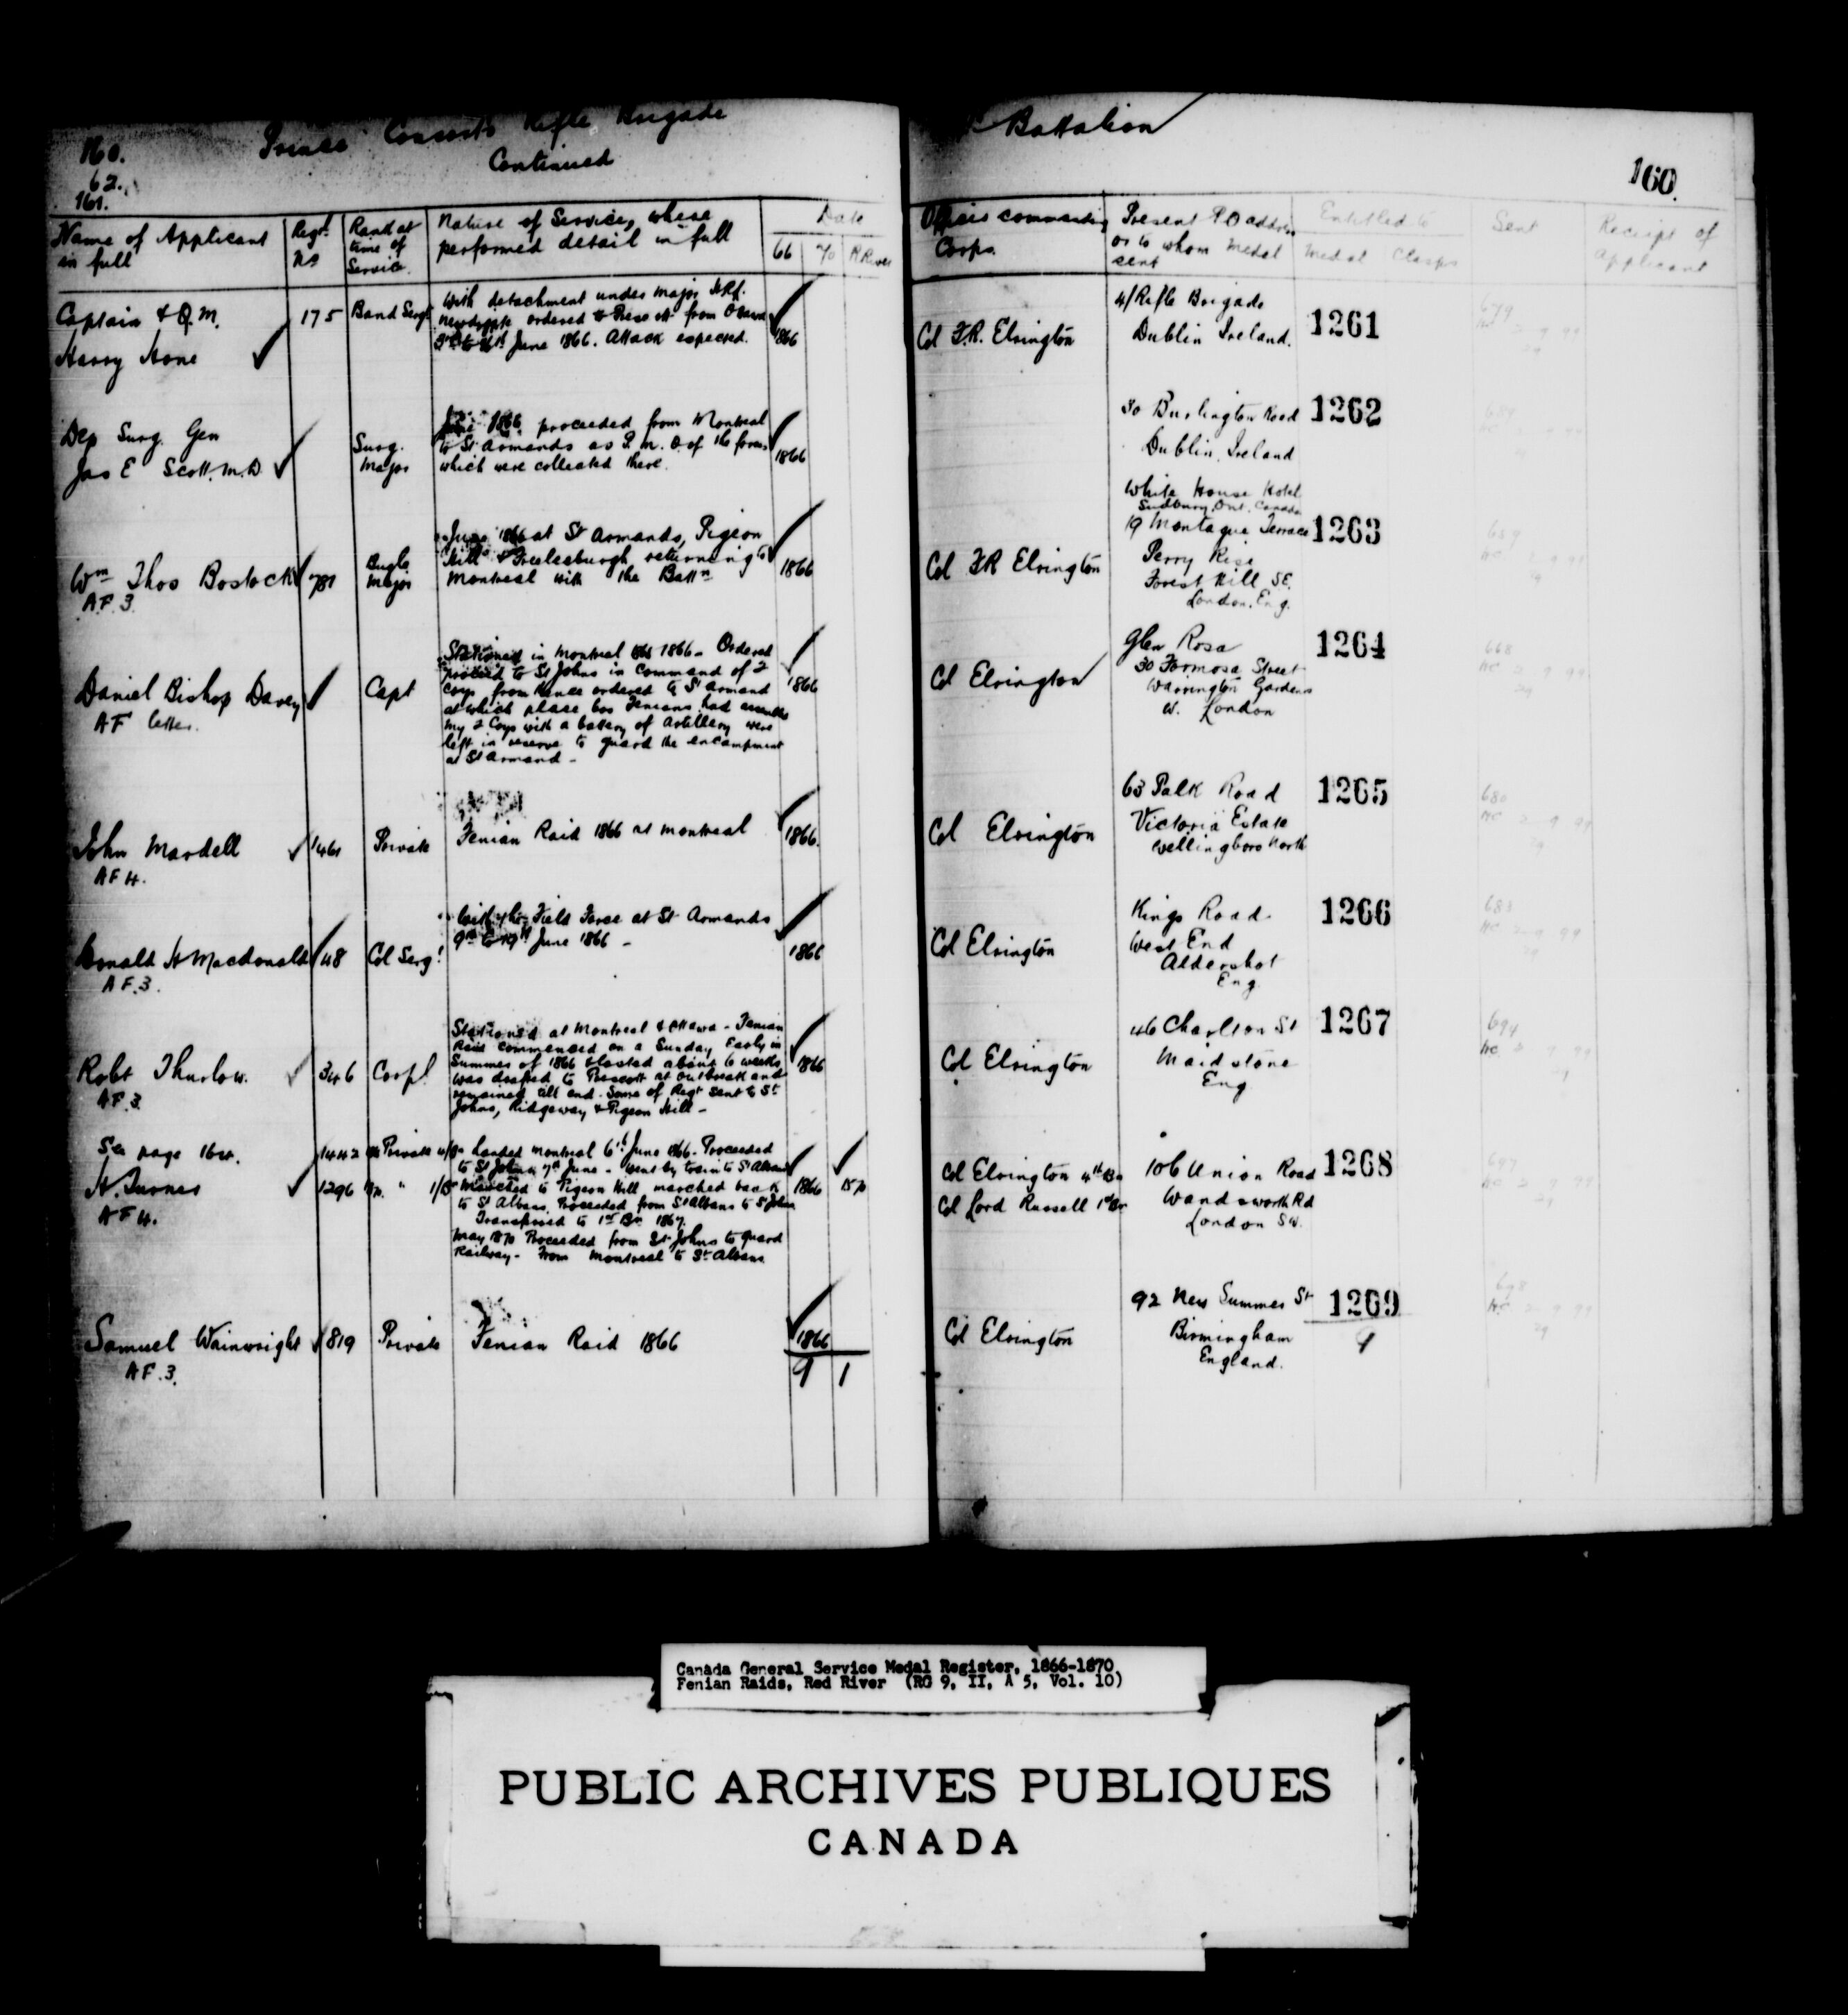 160.
62.
161.
Prince Consorts Rifle Brigade
Continued
Battalion
160.
Name of Applicant in full
Regtl No
Rank at time of Service.
Nature of Service, where performed detail in full
Date
66
70
R River
Officers commanding Corps.
Present P O address or to whom Medal sent
Entitled to
Medal
Clasps
Sent
Receipt of Applicant
Captain & Q.M.
Harry Hone
175
Band Sergt
With detachment under Major
ordered to from Ottawa
June 1866. Attack expected.
1866
Col F.R. Elrington
4/Rifle Brigade
Dublin Ireland.
1261
Dep Surg. Gen
Jas E Scott. M.D.
Surg. Major
June 1866 proceeded from Montreal
to St Armands as P.M.O. of the forces
which were collected there.
1866
30 Burlington Road
Dublin, Ireland
1262
Wm Thos Bostock
A.F. 3.
781
Bugle Major
June 1866 at St Armands, Pigeon
Hill & Freelesburgh returning to
Montreal with the Battn
1866
Col FR Elrington
White House Hotel
Sudbury, Ont. Canada
19 Montague Terrace
Perry Rise
Forest Hill S.E.
London. Eng.
1263
Daniel Bishop Davey
AF letter.
Capt
Stationed in Montreal 1866 - Ordered
proceed to St Johns in command of 2
Coys from thence ordered to St Armand
at which place Fenians had
my 2 Coys with a battery of Artillery were
left in reserve to guard the encampment
at St Armand -
1866
Col Elrington
Glen Rosa
30 Formosa Street
Warrington Gardens
W. London
1264
John Mardell
A F 4.
1461
Private
Fenian Raid 1866 at Montreal
1866.
Col Elrington
63 Palk Road
Victoria Estate
Wellingboro North
1265
Donald H Macdonald
A F. 3.
48
Col Sergt
With the Field Force at St Armands
9th to 19th June 1866 -
1866
Col Elrington
Kings Road
West End
Aldershot
Eng
1266
Robt Thurlow.
A.F. 3
346
Corpl
Stationed at Montreal & Ottawa - Fenian
Raid commenced on a Sunday Early in
Summer of 1866 & lasted about 6 weeks
was drafted to Prescott at outbreak and
remained till end. Some of Regt sent to St
Johns, Ridgeway & Pigeon Hill -
1866
Col Elrington
46 Charlton St
Maidstone
Eng
1267
See page 164.
H. Turner
A F 4.
1442
1296
Private 4/Bn
" 1/Bn
Landed Montreal 6th June 1866 - Proceeded
to St Johns 7th June - Went by train to St Albans
Marched to Pigeon Hill marched back
to St Albans. Proceeded from St Albans to St Johns
Transferred to 1st Bn 1867.
May 1870 Proceeded from St Johns to guard
Railway - From Montreal to St Albans
1866
1870
Col Elrington 4th Bn
Col Lord Russell 1st Bn
106 Union Road
Wandsworth Rd
London S.W.
1268
Samuel Wainwright
A F. 3.
819
Private
Fenian Raid 1866
1866
9 1
Col Elrington
92 New Summer St
Birmingham
England.
1269
9
Canada General Service Medal Register, 1866-1870
Fenian Raids, Red River (RG 9, II, A 5, Vol. 10)
PUBLIC ARCHIVES PUBLIQUES
CANADA